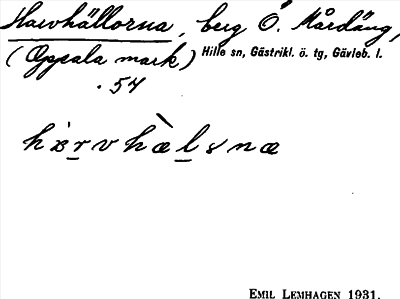 Harvhällorna, berg Ö. Mårdäng,
(Oppsala mark,) Hille sn, Gästrikl. ö. tg, Gävleb. l.
· 54
EMIL LEMHAGEN 1931.